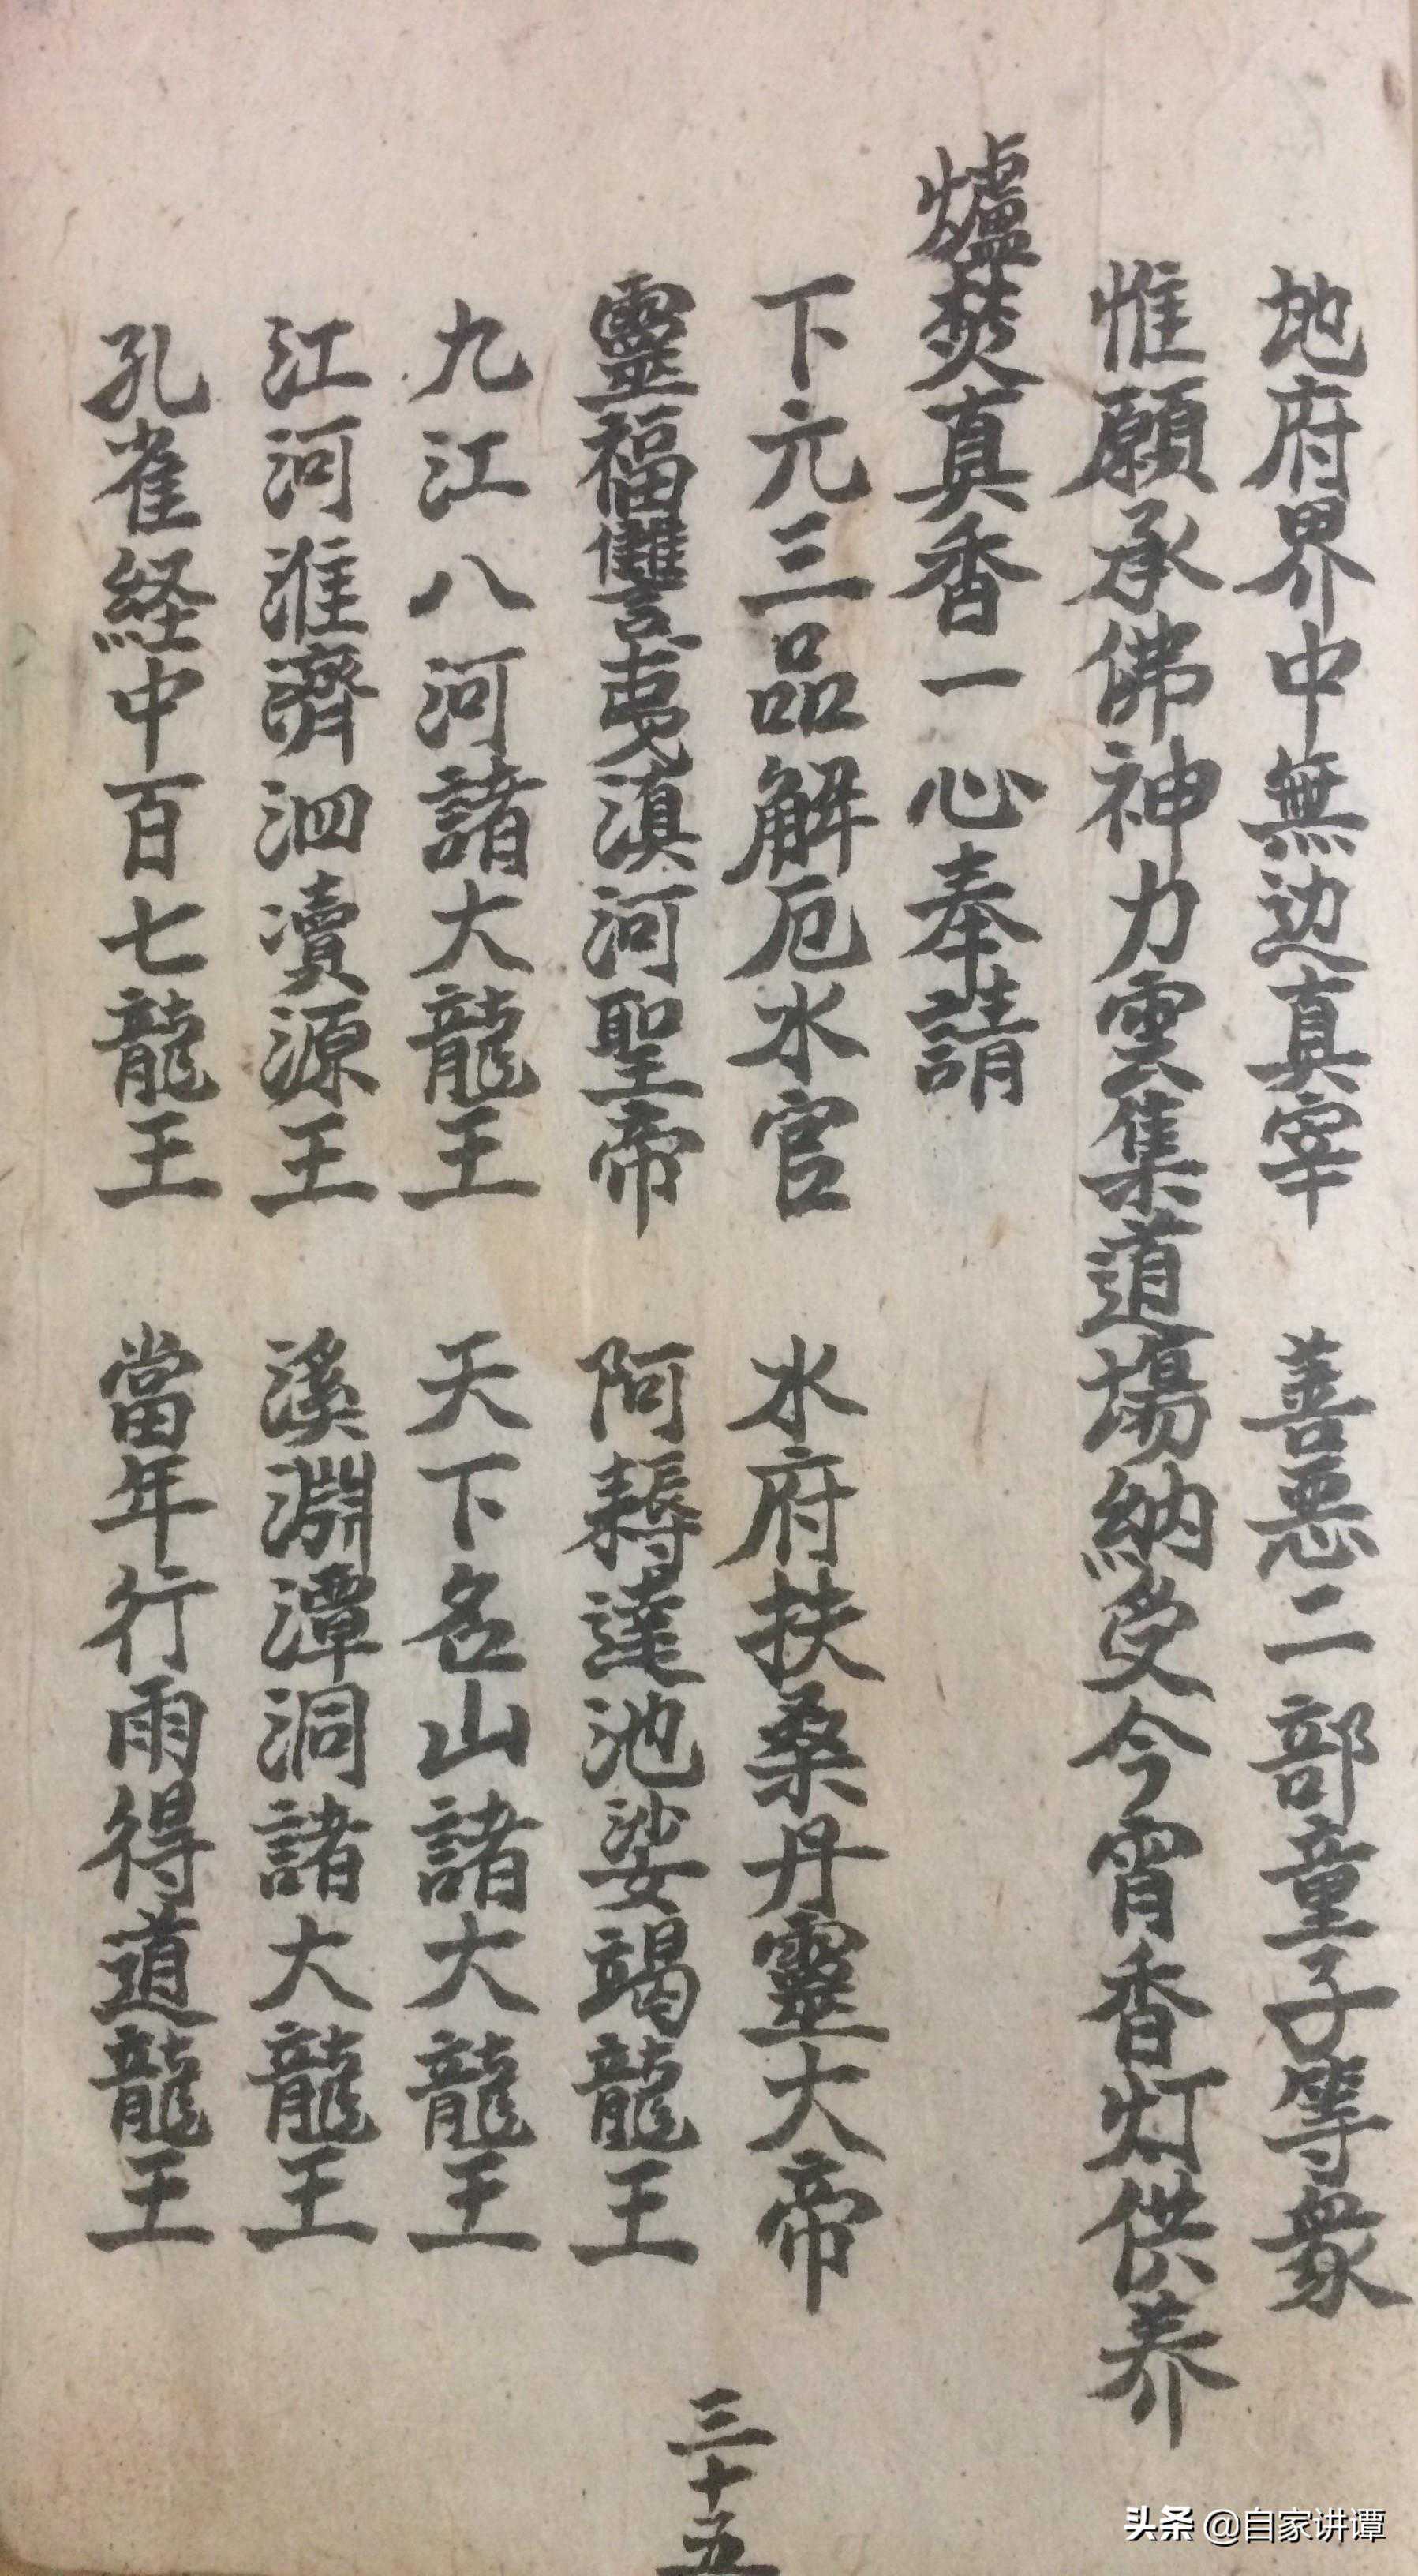 地府界中無边真宰　善惡二部童子等衆
惟願承佛神力雲集道場納受今宵香灯供养
爐焚真香一心奉請
下元三品解厄水官　水府扶桑丹靈大帝
靈福讐夷滇河聖帝　阿耨達池娑竭龍王
九江八河諸大龍王　天下名山諸大龍王
江河淮濟泗瀆源王　溪淵潭洞諸大龍王
孔雀経中百七龍王　當年行雨得道龍王
三十五
头条 @自家讲谭